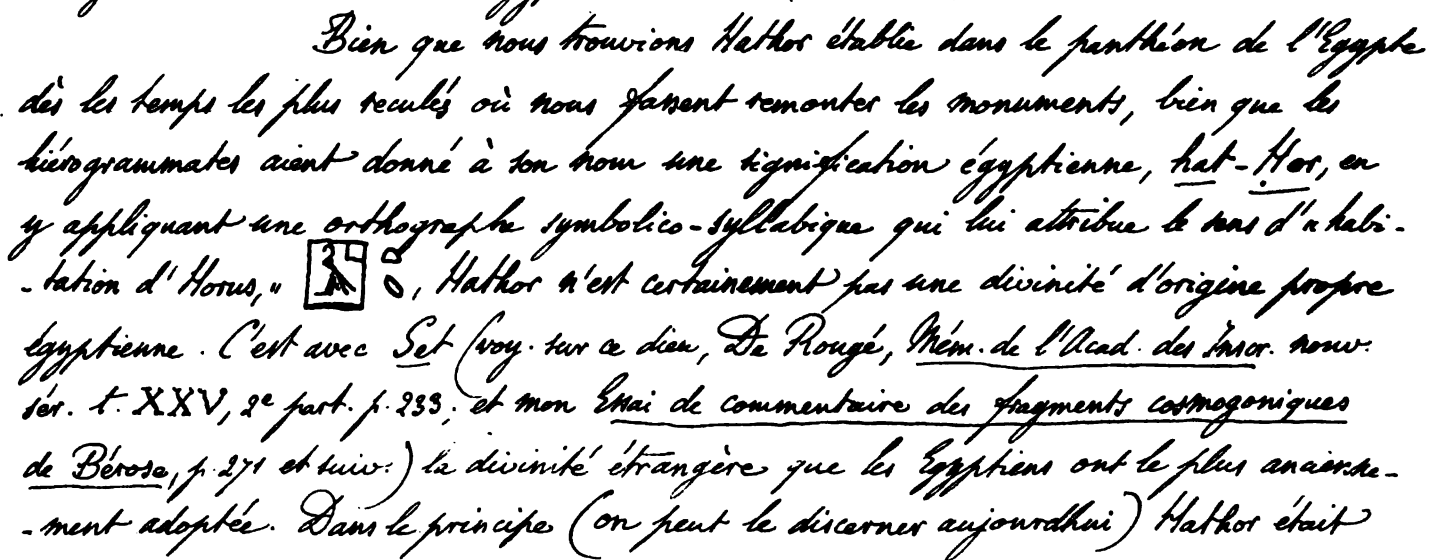 Bien que nous trouvions Hathor établie dans le panthéon de l'Egypte
dès les temps les plus reculés où nous fassent remonter les monuments, bien que les
hiérogrammates aient donné à son nom une signification égyptienne, hat-Hor, en
y appliquant une orthographe symbolico-syllabique qui lui attribue le sens d'« habi-
-tation d'Horus, » , Hathor n'est certainement pas une divinité d'origine propre
égyptienne. C'est avec Set (voy. sur ce dieu, De Rougé, Mém. de l'Acad. des Inscr. nouv.
sér. t. XXV, 2e part. p. 233; et mon Essai de commentaire des fragments cosmogoniques
de Bérose, p. 271 et suiv.) la divinité étrangère que les Egyptiens ont le plus ancienne-
-ment adoptée. Dans le principe (on peut le discerner aujourdhui) Hathor était